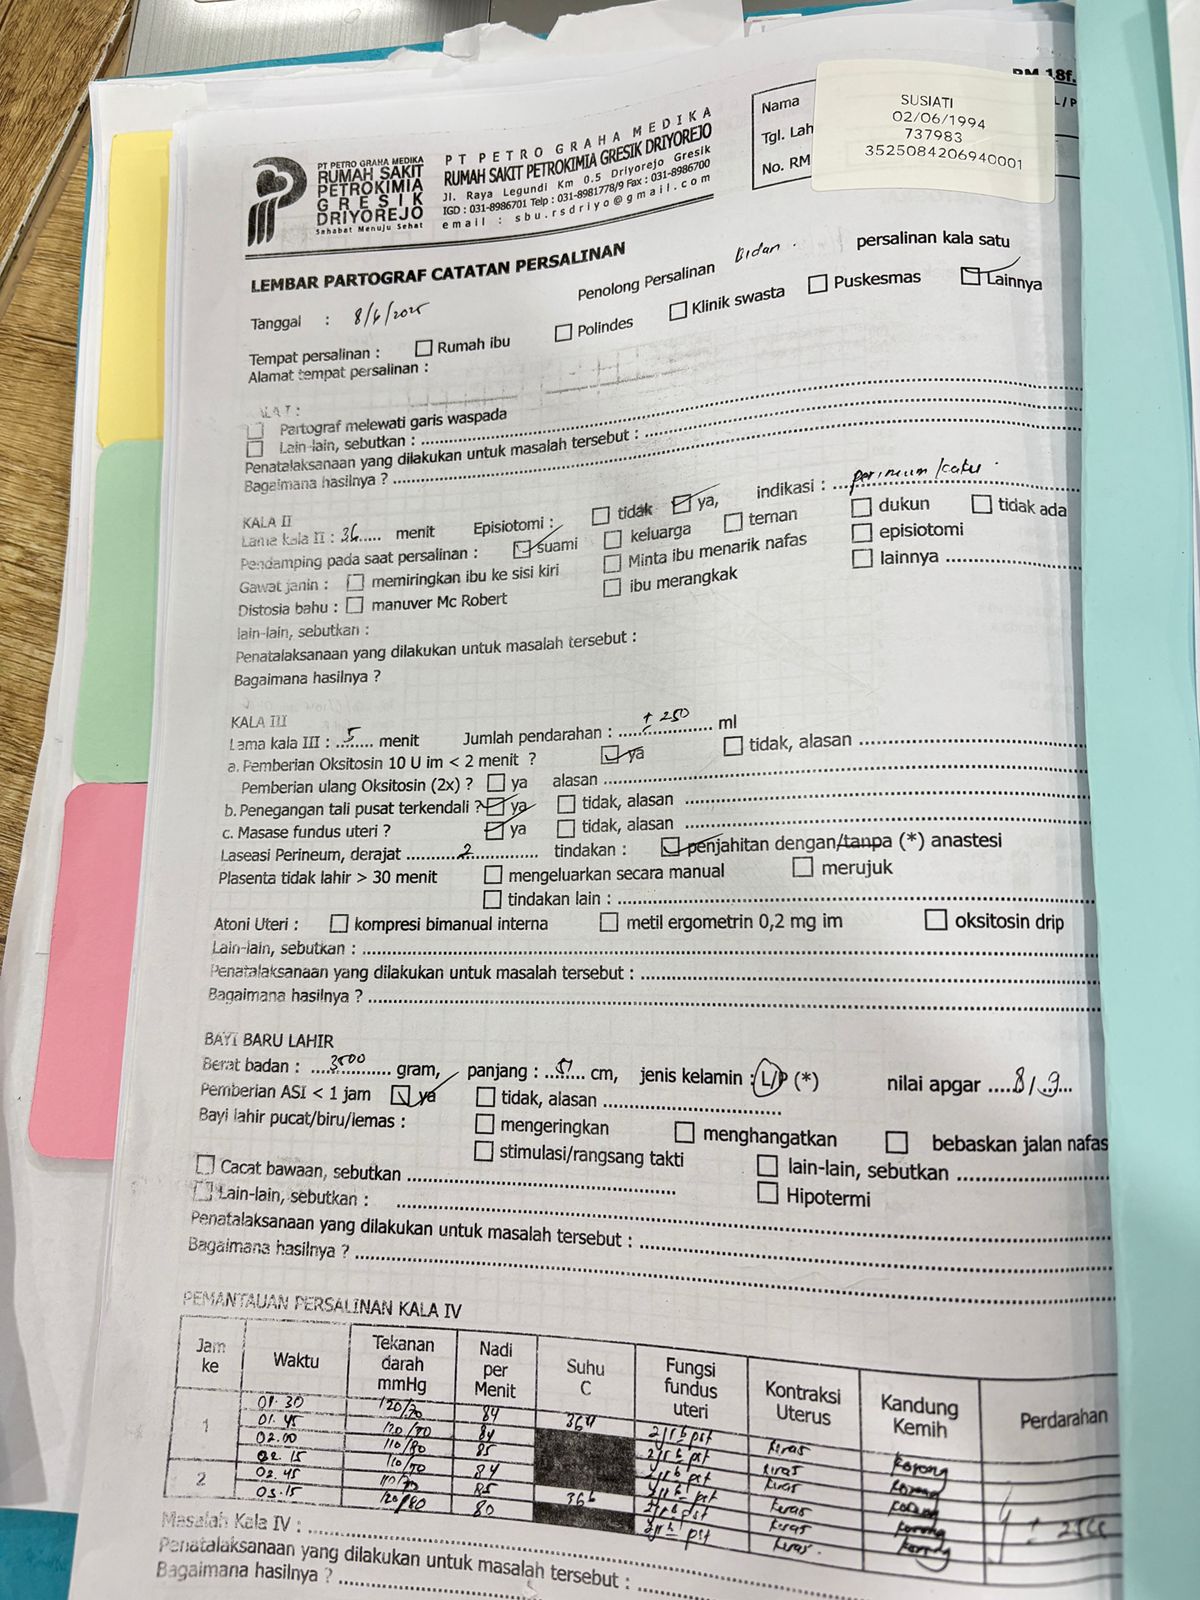 RM 18f.
SUSIATI
02/06/1994
737983
3525084206940001
Nama
L/P
Tgl. Lah
No. RM
PT PETRO GRAHA MEDIKA
RUMAH SAKIT
PETROKIMIA
GRESIK
DRIYOREJO
Sahabat Menuju Sehat
PT PETRO GRAHA MEDIKA
RUMAH SAKIT PETROKIMIA GRESIK DRIYOREJO
Jl. Raya Legundi Km 0.5 Driyorejo Gresik
IGD : 031-8986701 Telp : 031-8981778/9 Fax : 031-8986700
email : sbu.rsdriyo@gmail.com
LEMBAR PARTOGRAF CATATAN PERSALINAN
Tanggal : 8/6/2025 Penolong Persalinan Bidan . persalinan kala satu
Tempat persalinan : Rumah ibu Polindes Klinik swasta Puskesmas Lainnya
Alamat tempat persalinan :
KALA I :
Partograf melewati garis waspada
Lain-lain, sebutkan :
Penatalaksanaan yang dilakukan untuk masalah tersebut :
Bagaimana hasilnya ?
KALA II
Lama kala II : 36 menit Episiotomi : tidak ya, indikasi : perineum kaku
Pendamping pada saat persalinan : suami keluarga teman dukun tidak ada
Gawat janin : memiringkan ibu ke sisi kiri Minta ibu menarik nafas episiotomi
Distosia bahu : manuver Mc Robert ibu merangkak lainnya
lain-lain, sebutkan :
Penatalaksanaan yang dilakukan untuk masalah tersebut :
Bagaimana hasilnya ?
KALA III
Lama kala III : 5 menit Jumlah pendarahan : ± 250 ml
a. Pemberian Oksitosin 10 U im < 2 menit ? ya tidak, alasan
Pemberian ulang Oksitosin (2x) ? ya alasan
b. Penegangan tali pusat terkendali ? ya tidak, alasan
c. Masase fundus uteri ? ya tidak, alasan
Laseasi Perineum, derajat 2 tindakan : penjahitan dengan/tanpa (*) anastesi
Plasenta tidak lahir > 30 menit mengeluarkan secara manual merujuk
tindakan lain :
Atoni Uteri : kompresi bimanual interna metil ergometrin 0,2 mg im oksitosin drip
Lain-lain, sebutkan :
Penatalaksanaan yang dilakukan untuk masalah tersebut :
Bagaimana hasilnya ?
BAYI BARU LAHIR
Berat badan : 3500 gram, panjang : 51 cm, jenis kelamin : L/P (*) nilai apgar 8/9
Pemberian ASI < 1 jam ya tidak, alasan
Bayi lahir pucat/biru/lemas : mengeringkan menghangatkan bebaskan jalan nafas
stimulasi/rangsang takti lain-lain, sebutkan
Cacat bawaan, sebutkan Hipotermi
Lain-lain, sebutkan :
Penatalaksanaan yang dilakukan untuk masalah tersebut :
Bagaimana hasilnya ?
PEMANTAUAN PERSALINAN KALA IV
Jam ke Waktu Tekanan darah mmHg Nadi per Menit Suhu C Fungsi fundus uteri Kontraksi Uterus Kandung Kemih Perdarahan
1 01.30 120/70 84 364 2 jr b pst keras kosong
01.45 120/70 84 2 jr b pst keras kosong
02.00 110/80 85 2 jr b pst keras kosong
02.15 110/70 84 2 jr b pst keras kosong
2 02.45 110/70 85 366 2 jr b pst keras kosong
03.15 120/80 80 2 jr b pst keras kosong
Masalah Kala IV :
Penatalaksanaan yang dilakukan untuk masalah tersebut :
Bagaimana hasilnya ?